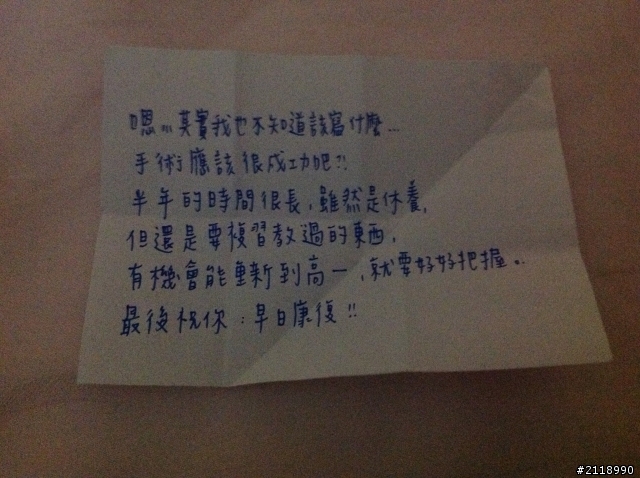 嗯...其實我也不知道該寫什麼...
手術應該很成功吧?!
半年的時間很長,雖然是休養,
但還是要複習教過的東西,
有機會能重新到高一,就要好好把握。
最後祝你:早日康復!!
#2118990